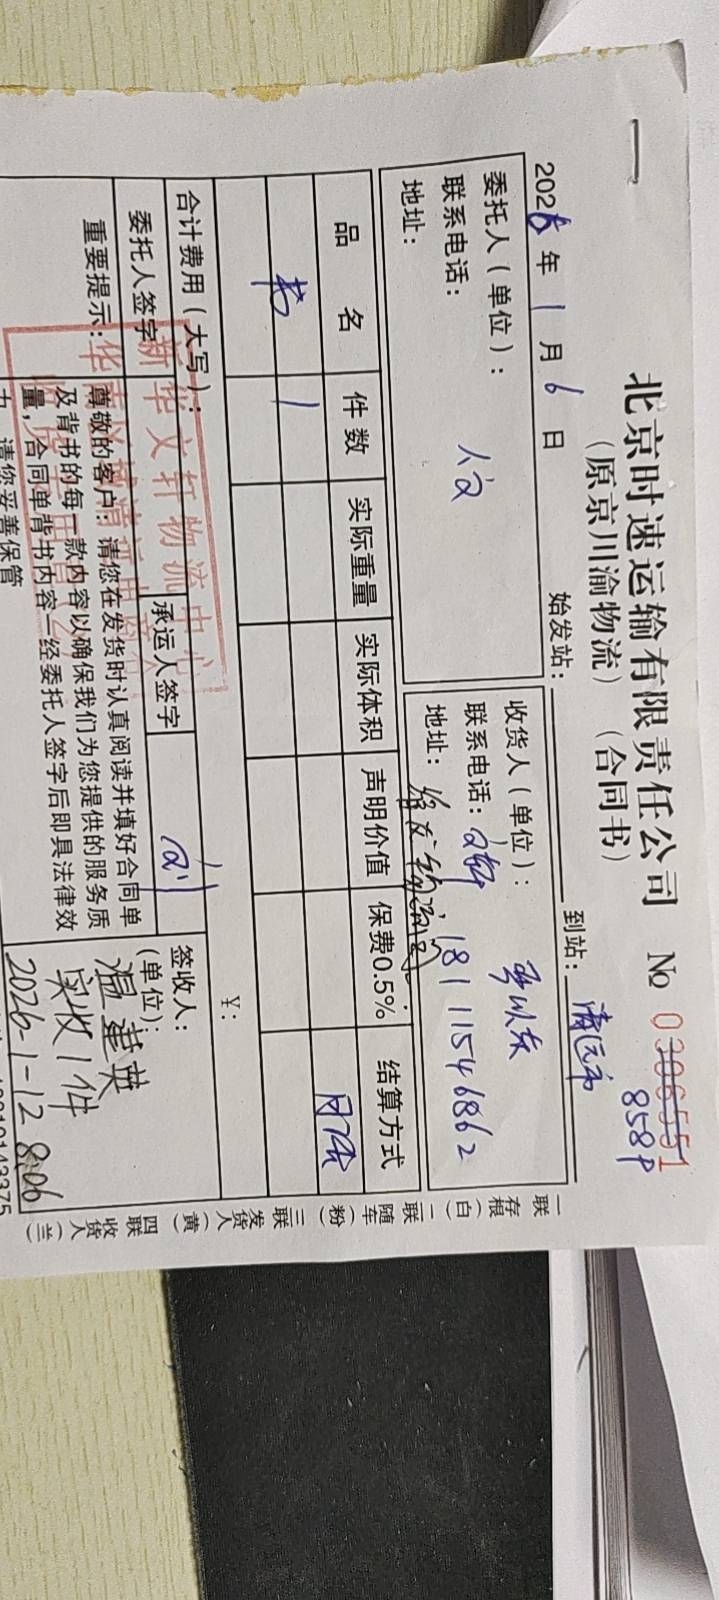 北京时速运输有限责任公司 № 0306551
（原京川渝物流）（合同书） 858P
2026年1月6日 始发站： 到站：清远市
委托人（单位）： 人文
联系电话：
地址：
收货人（单位）：
联系电话： 18111546862
地址：
品名 件数 实际重量 实际体积 声明价值 保费0.5% 结算方式
月结
书 1
合计费用（大写）： ¥：
委托人签字 承运人签字
签收人：
（单位）：
温建英
实收1件
2026-1-12 8:06
重要提示：尊敬的客户：请您在发货时认真阅读并填好合同单
及背书的每一款内容以确保我们为您提供的服务质
量，合同单背书内容一经委托人签字后即具法律效
力，请您妥善保管
新华文轩物流中心
一联存根（白）二联随车（粉）三联发货人（黄）四联收货人（兰）